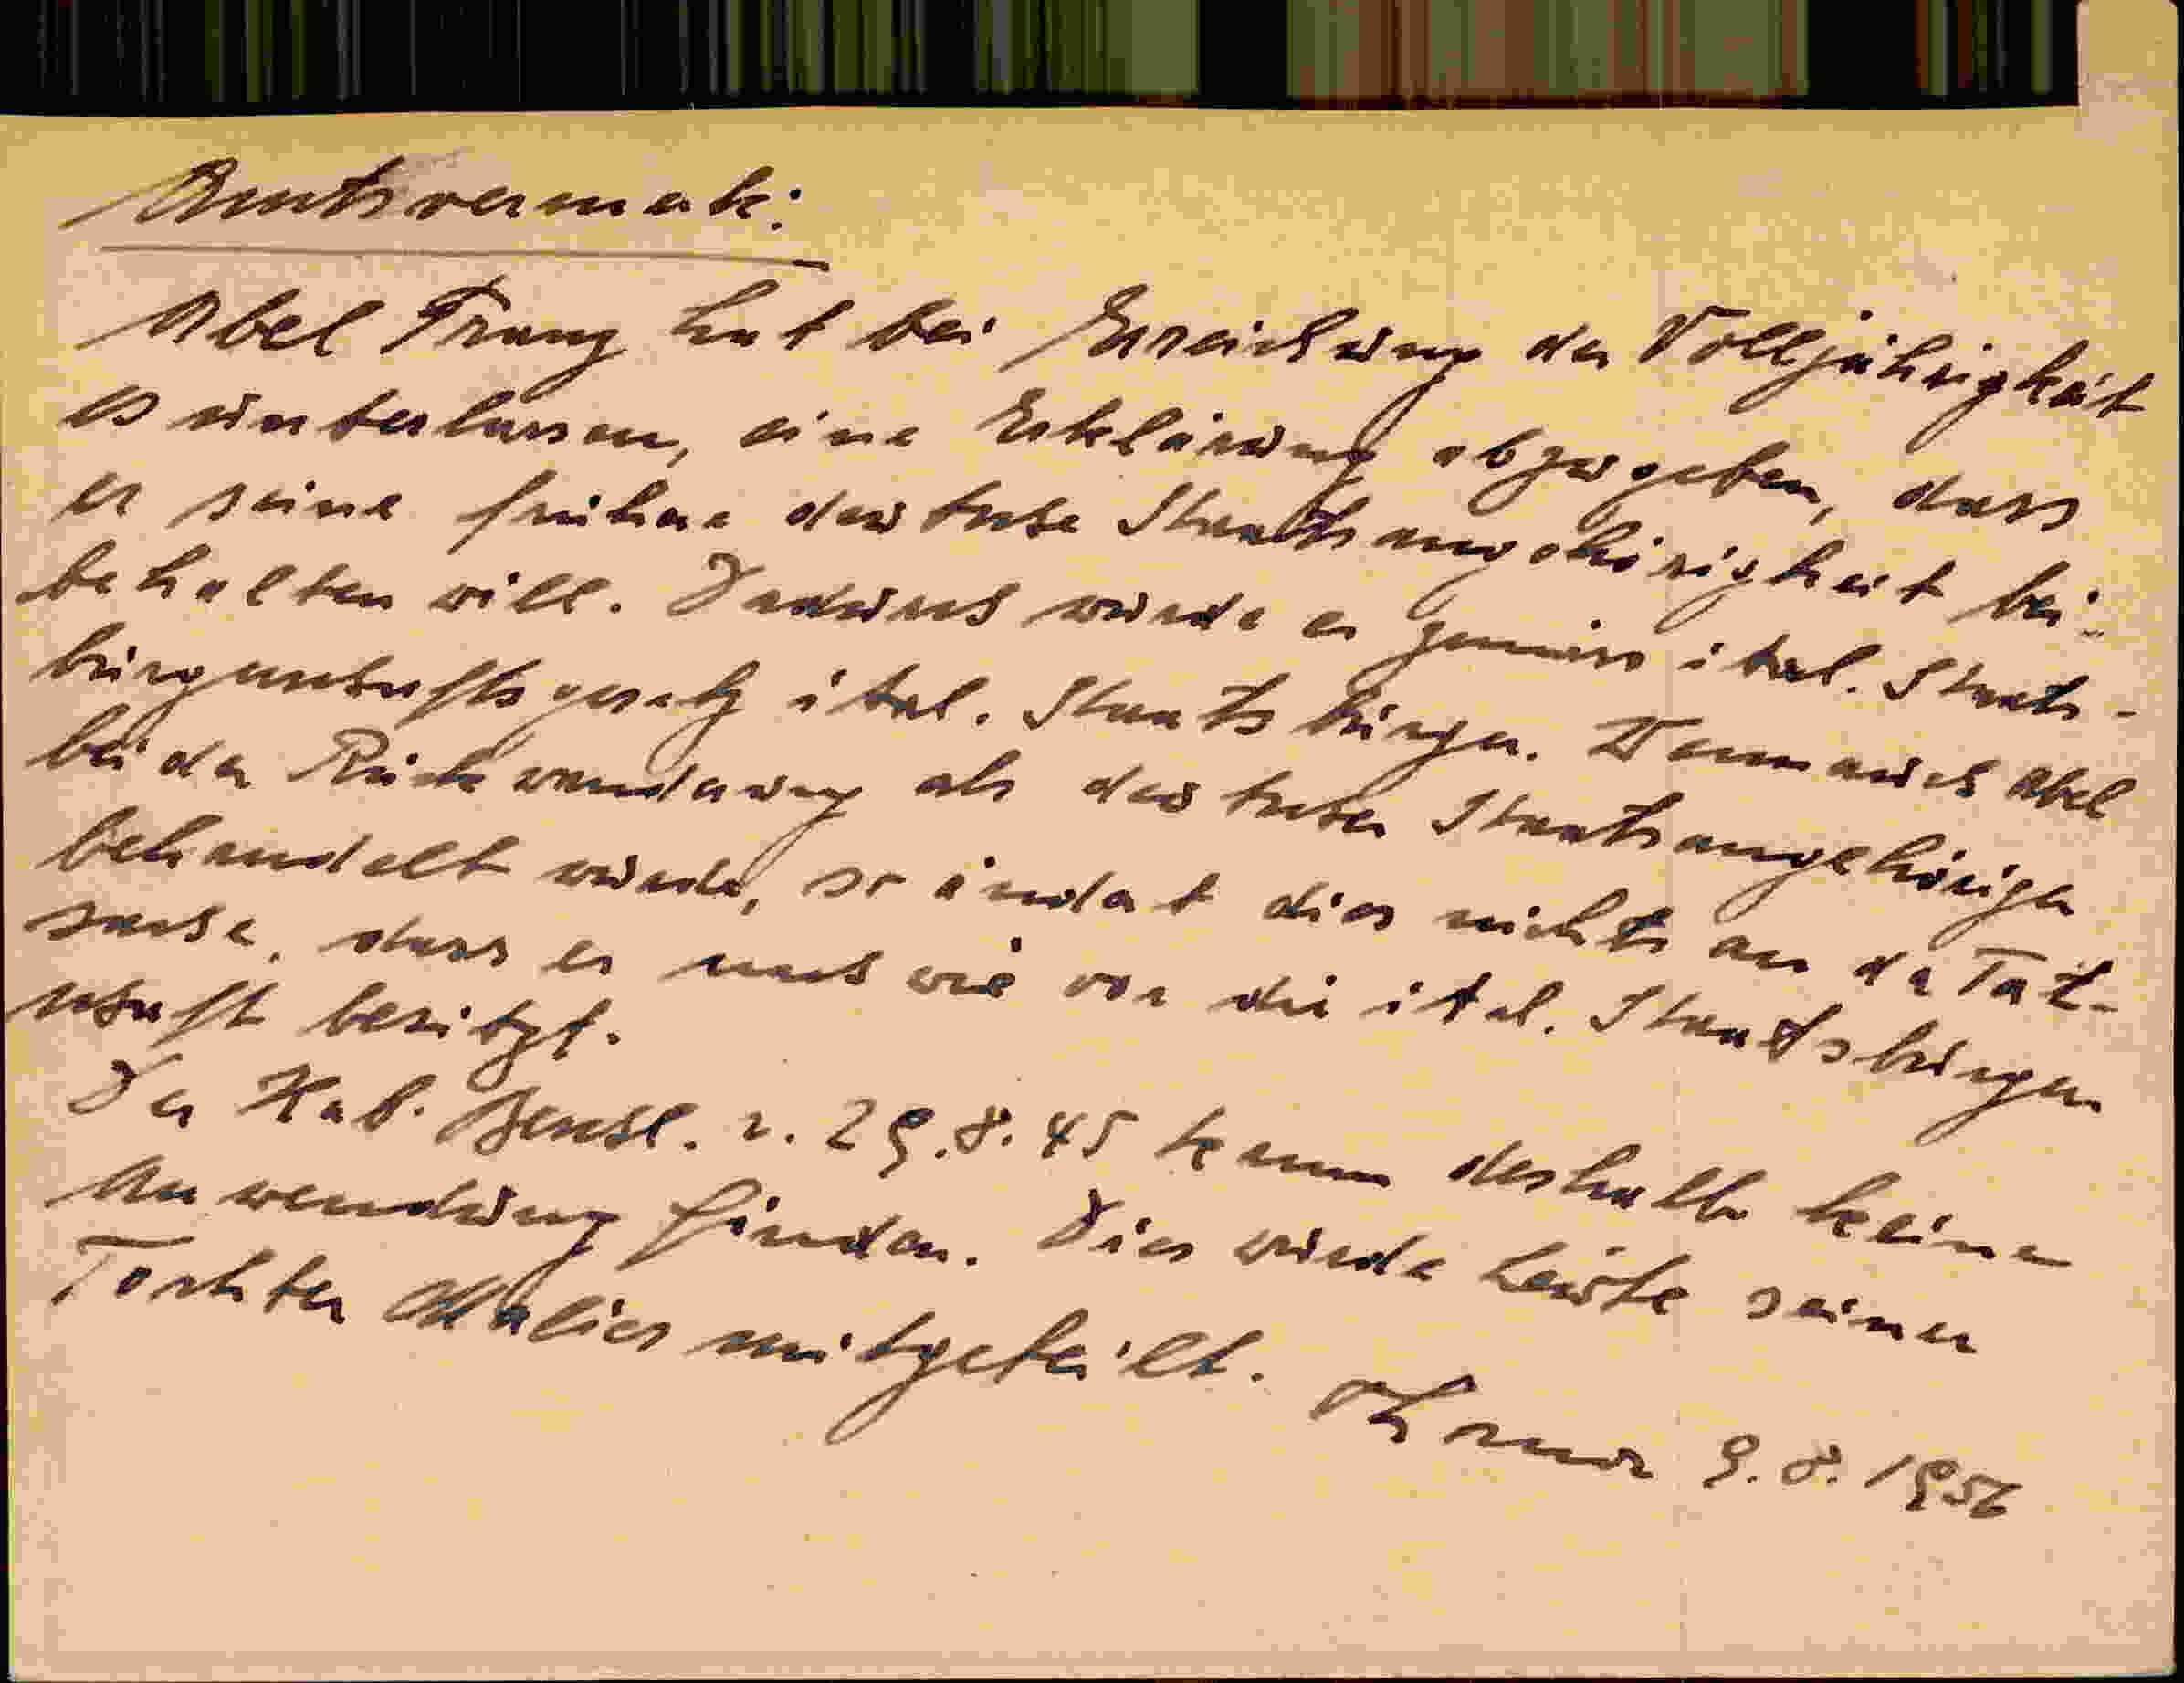 Amtsvermerk:
Abel Franz hat bei Erreichung der Volljährigkeit
es unterlassen, eine Erklärung abzugeben, dass
er seine frühere deutsche Staatsangehörigkeit bei-
behalten will. Dadurch wurde er gemäss ital. Staats-
bürgerschaftsgesetz ital. Staatsbürger. Wenn auch Abel
bei der Rückwanderung als deutscher Staatsangehöriger
behandelt wurde, so ändert dies nichts an der Tat-
sache, dass er nach wie vor die ital. Staatsbürger-
schaft besitzt.
Der Kab. Beschl. v. 29.8.45 kann deshalb keine
Anwendung finden. Dies wurde heute seiner
Tochter mitgeteilt.
9.8.1956